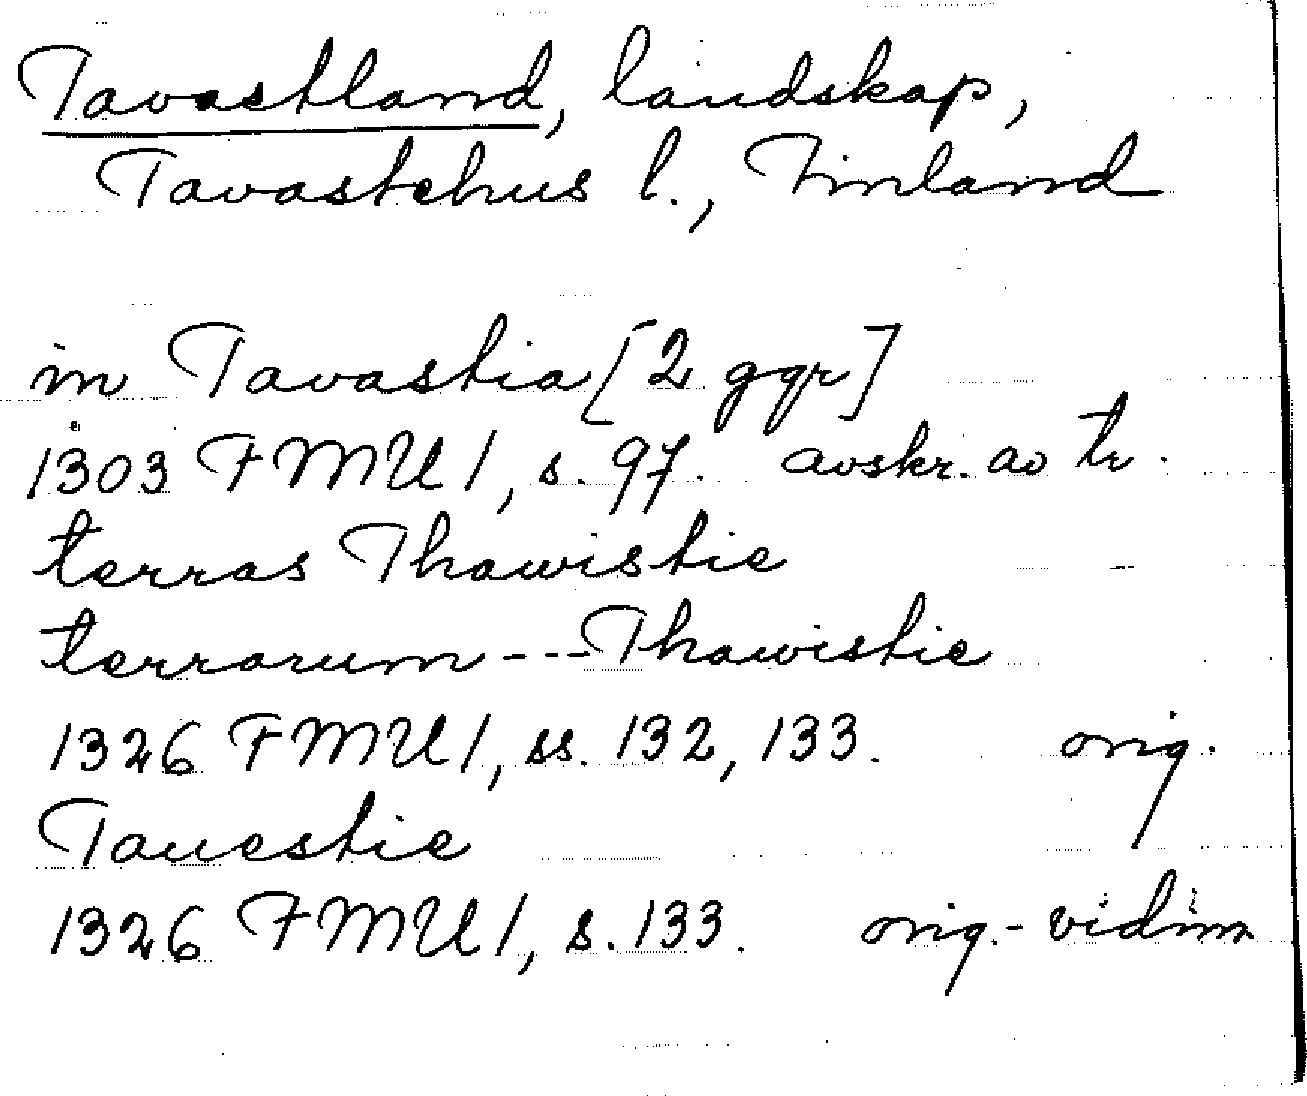 Tavastland, landskap,
Tavastehus l., Finland
in Tavastia [2 ggr]
1303 FMU 1, s. 97. avskr. av tr.
terras Thawistie
terrarum --- Thawistie
1326 FMU 1, ss. 132, 133. orig.
Tauestie
1326 FMU 1, s. 133. orig.-vidim